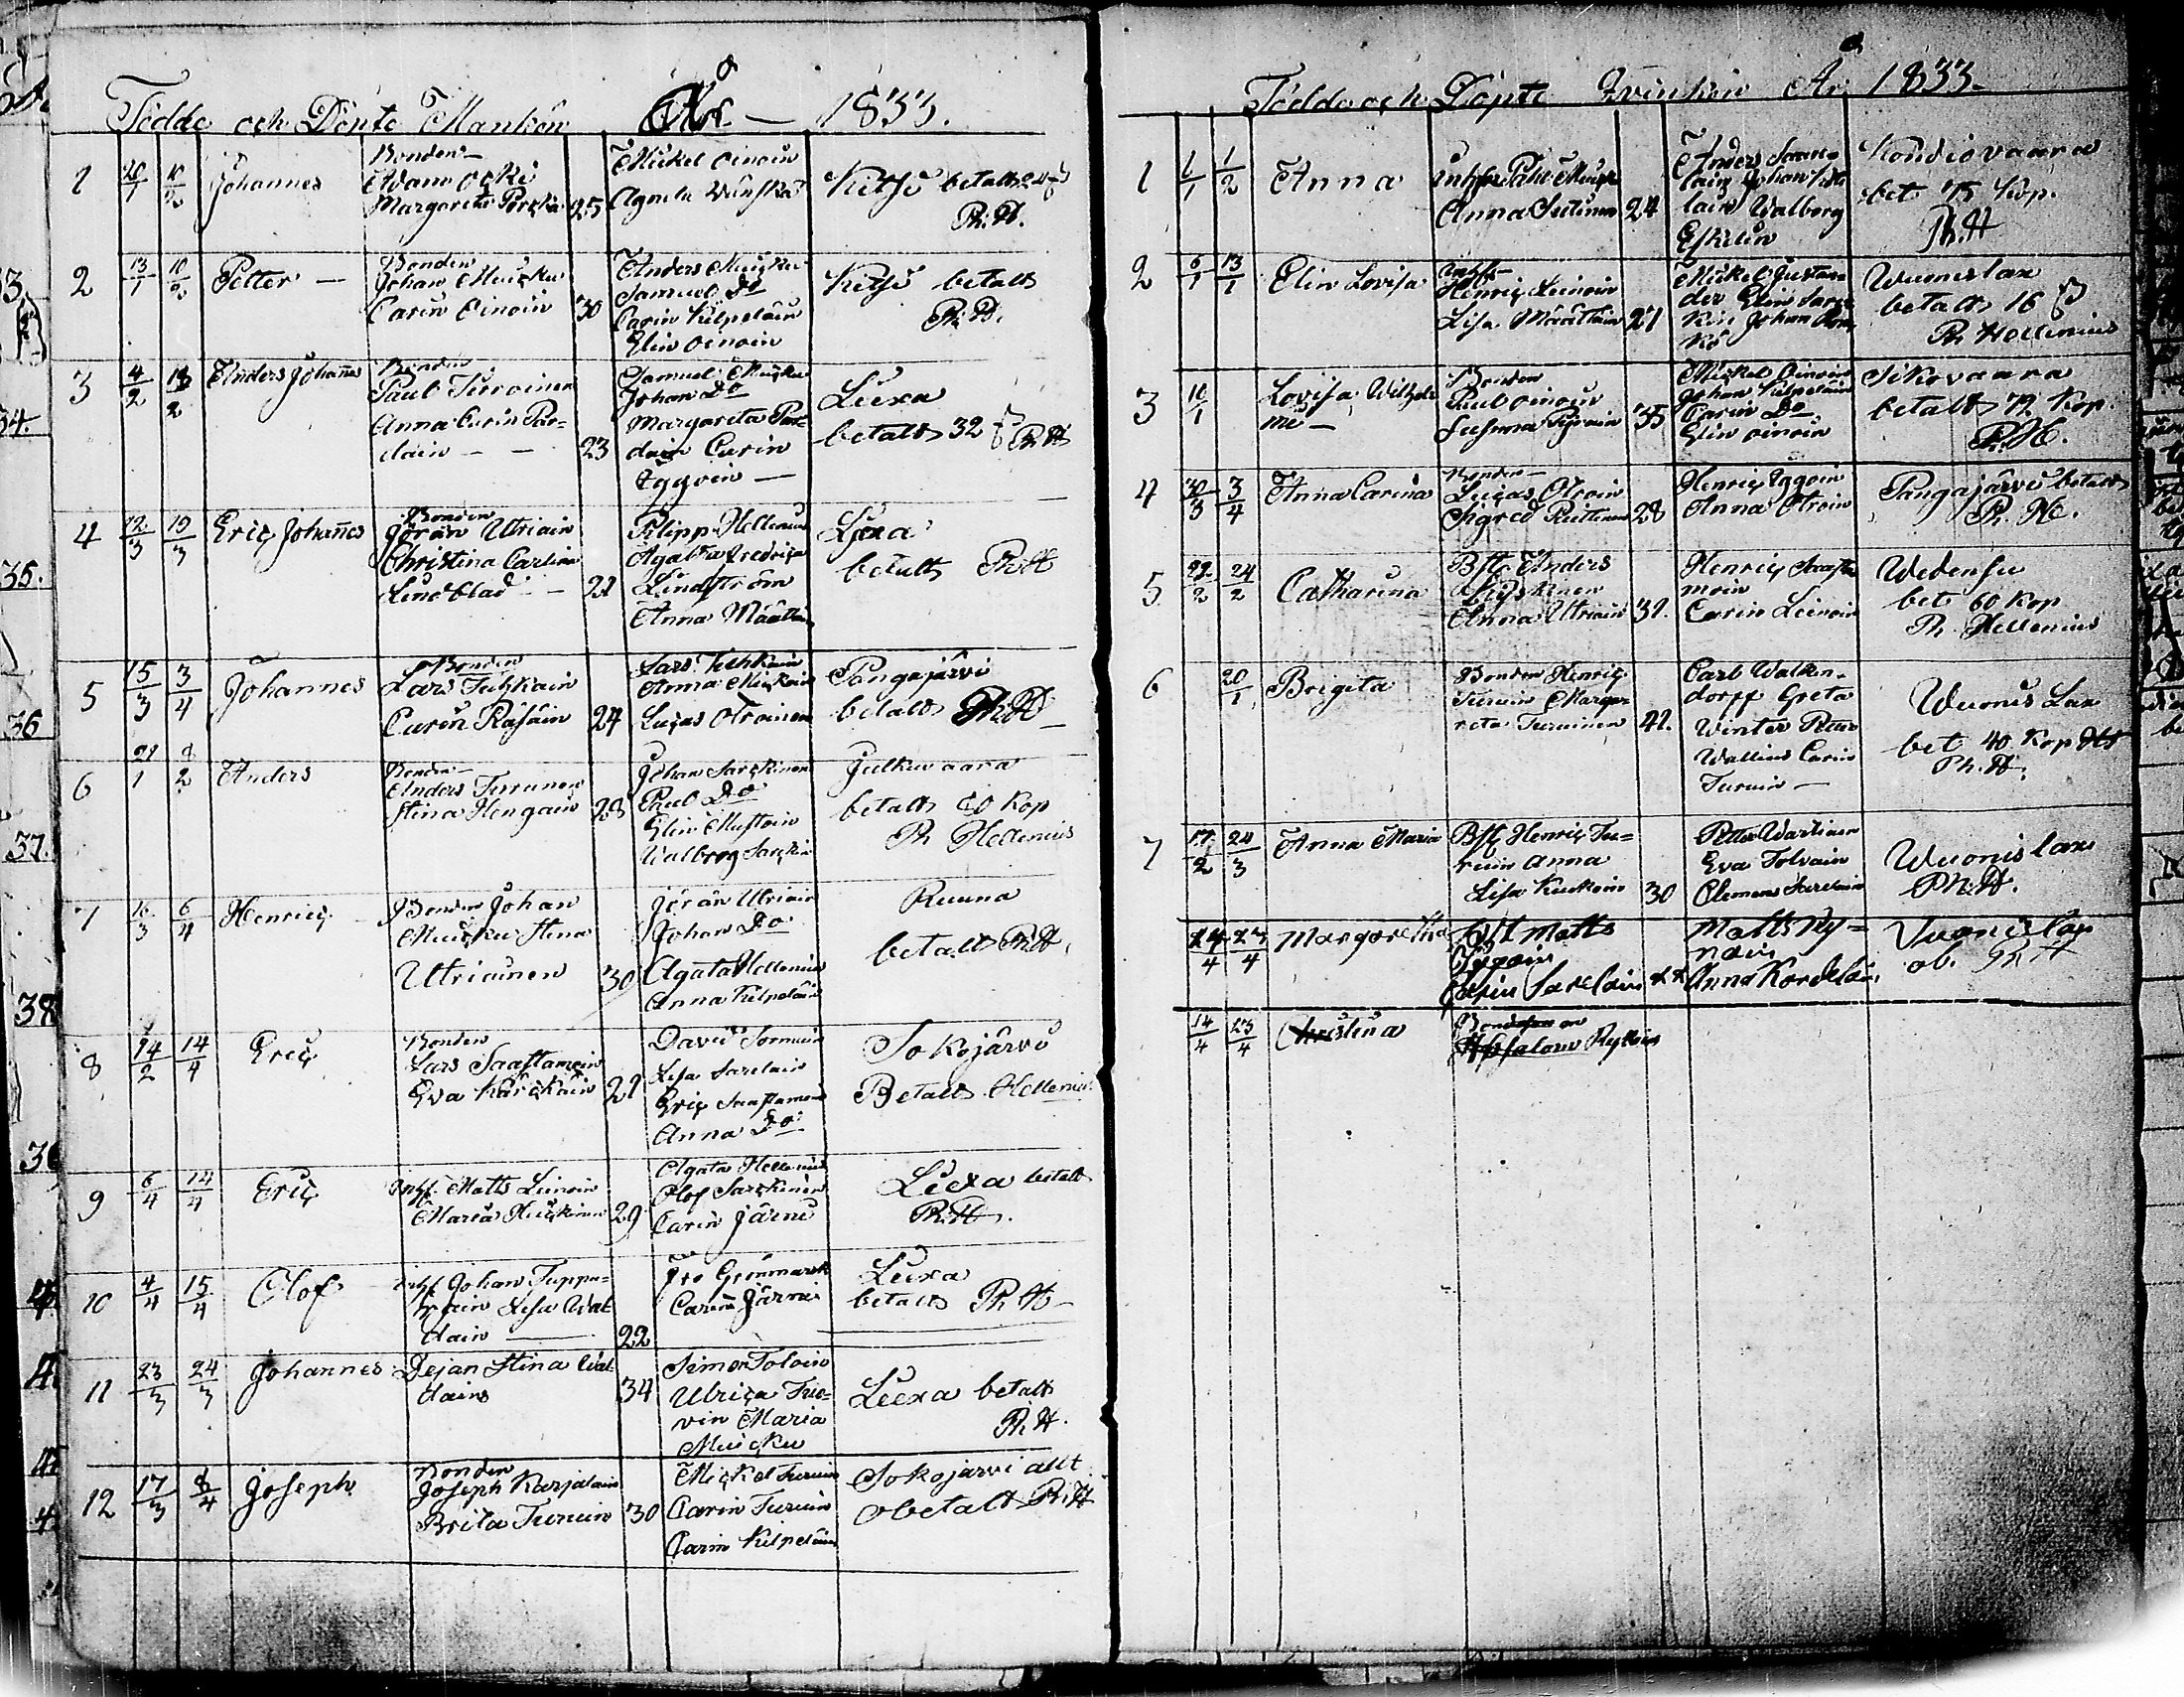 Födde och Döpte Mankön År – 1833.
1 20/1 10/2 Johannes
Bonden
Adam Ocki
Margareta Porcka 25
Mickel Oinoin
Agneta Wänskä
Ketje betalt 24
Ph. H.
2 13/1 10/2 Petter –
Bonden
Johan Muicku
Carin Oinoin 30
Anders Muicku
Samuel Do
Carin Kilpeläin
Elin Oinoin
Ketje betalt
Ph. H.
3 4/2 /2 Anders Johannes
Bonden
Paul Turoinen
Anna Carin Par=
dain – – 23
Samuel Muicku
Johan Do
Margareta Par=
dain Carin
Iggoin –
Liexa
betalt 32 Ph. H
4 12/3 19/3 Eric Johannes
Bonden
Jöran Utriain
Christina Carlina
Lindblad – – 21
Philipp Hellenius
Agatha Fredrica
Lindström
Anna Määttä
Liexa
betalt Ph. H
5 15/3 3/4 Johannes
Bonden
Lars Tuhkain
Carin Räsäin 24
Lars Tuhkain
Anna Muickain
Lucas Otroinen
Pangajärvi
betalt Ph. H
6 21/1 2/2 Anders
Bonden
Anders Turunen
Stina Hengain 28
Johan Sarckinen
Paul Do
Elin Mustoin
Walborg Sarckin
Julkuvaara
betalt 60 Kop
Ph Hellenius
7 16/3 6/4 Henric
Bonden Johan
Muicku Stina
Utriainen 30
Jöran Utriain
Johan Do
Agata Hellenius
Anna Kilpeläin
Ruuna
betalt Ph. H.
8 14/2 14/4 Eric
Bonden
Lars Saastamoin
Eva Kärckäin 21
David Sormuin
Lisa Sarelain
Eric Saastamoin
Anna Do
Sokojärvi
Betalt Hellenius
9 6/4 14/4 Eric
Inhs. Matts Leinoin
Maria Muickinen 29
Agata Hellenius
Olof Sarckinen
Carin Järni
Liexa betalt
Ph. H.
10 4/4 15/4 Olof
inhs Johan Tuppu=
rain Lisa Wat
dain — 22
Grönmarck
Carin Järni
Liexa
betalt Ph H –
11 23/3 24/3 Johannes
Pejan Stina Wal
dains 34
Simon Tolvin
Ulrica Tuo=
vin Maria
Muicku
Liexa betalt
Ph. H.
12 17/3 8/4 Joseph
Bonden
Joseph Karjalain
Brita Turuin 30
Mickel Turuin
Carin Turuin
Carin Kilpeläin
Sokojärvi allt
obetalt Ph. H
Födda och Döpte Qvinkön År 1833.
1 1/1 1/2 Anna
Inhs Påhl Muicku
Anna Sutinen 24
Anders Saare=
lain Johan
lain Walborg
Eskelin
Kondiovaara
bet 75 Kop.
Ph. H
2 6/1 13/1 Elin Lovisa
Inhs –
Henric Leinoin
Lisa Määttäin 21
Mickel Gustan
der Elin Sarc
kin Johan
kö
Wuonislax
betalt 16
Ph Hellenius
3 10/1 Lovisa Wilhel
mi –
Bonden
Paul Oinoin
Susanna Pijrain 35
Mickel Oinoin
Johan Kilpeläin
Carin Do
Elin Oinoin
Sikovaara
betalt 72 Kop.
Ph. H.
4 30/3 3/4 Anna Carina
Bonden –
Lucas Otroin
Sigred Reittinen 28
Henric Iggoin
Anna Otroin
Pangajärvi betalt
Ph. H.
5 22/2 24/2 Catharina
Bss Anders
Kärckinen
Anna Utriain 31.
Henric Saasta
moin
Carin Leinoin
Wedensu
bet 60 Kop
Ph Hellenius
6 20/1 Brigita
Bonden Henric
Turuin Marga
reta Turuinen 41.
Carl Walken=
dorff Greta
Winter Petter
Wallius Carin
Turuin –
Wuonis Lax
bet 40 Kop
Ph. H.
7 17/2 24/3 Anna Maria
Bss Henric Tu=
ruin Anna
Lisa Kuckoin 30
Petter Wartiain
Eva Tolvain
Clemens Sarelain
Wuonislax
Ph. H.
14/4 23/4 Margaretha
Matts
Iggoin
Carin Sarelain
Matts Ry=
näin
Anna Kordeläi
Vuonislax
ob. Ph H
14/4 23/4 Christina
Bonden
Apsalom Rytköin
33.
34.
35.
36
37.
38